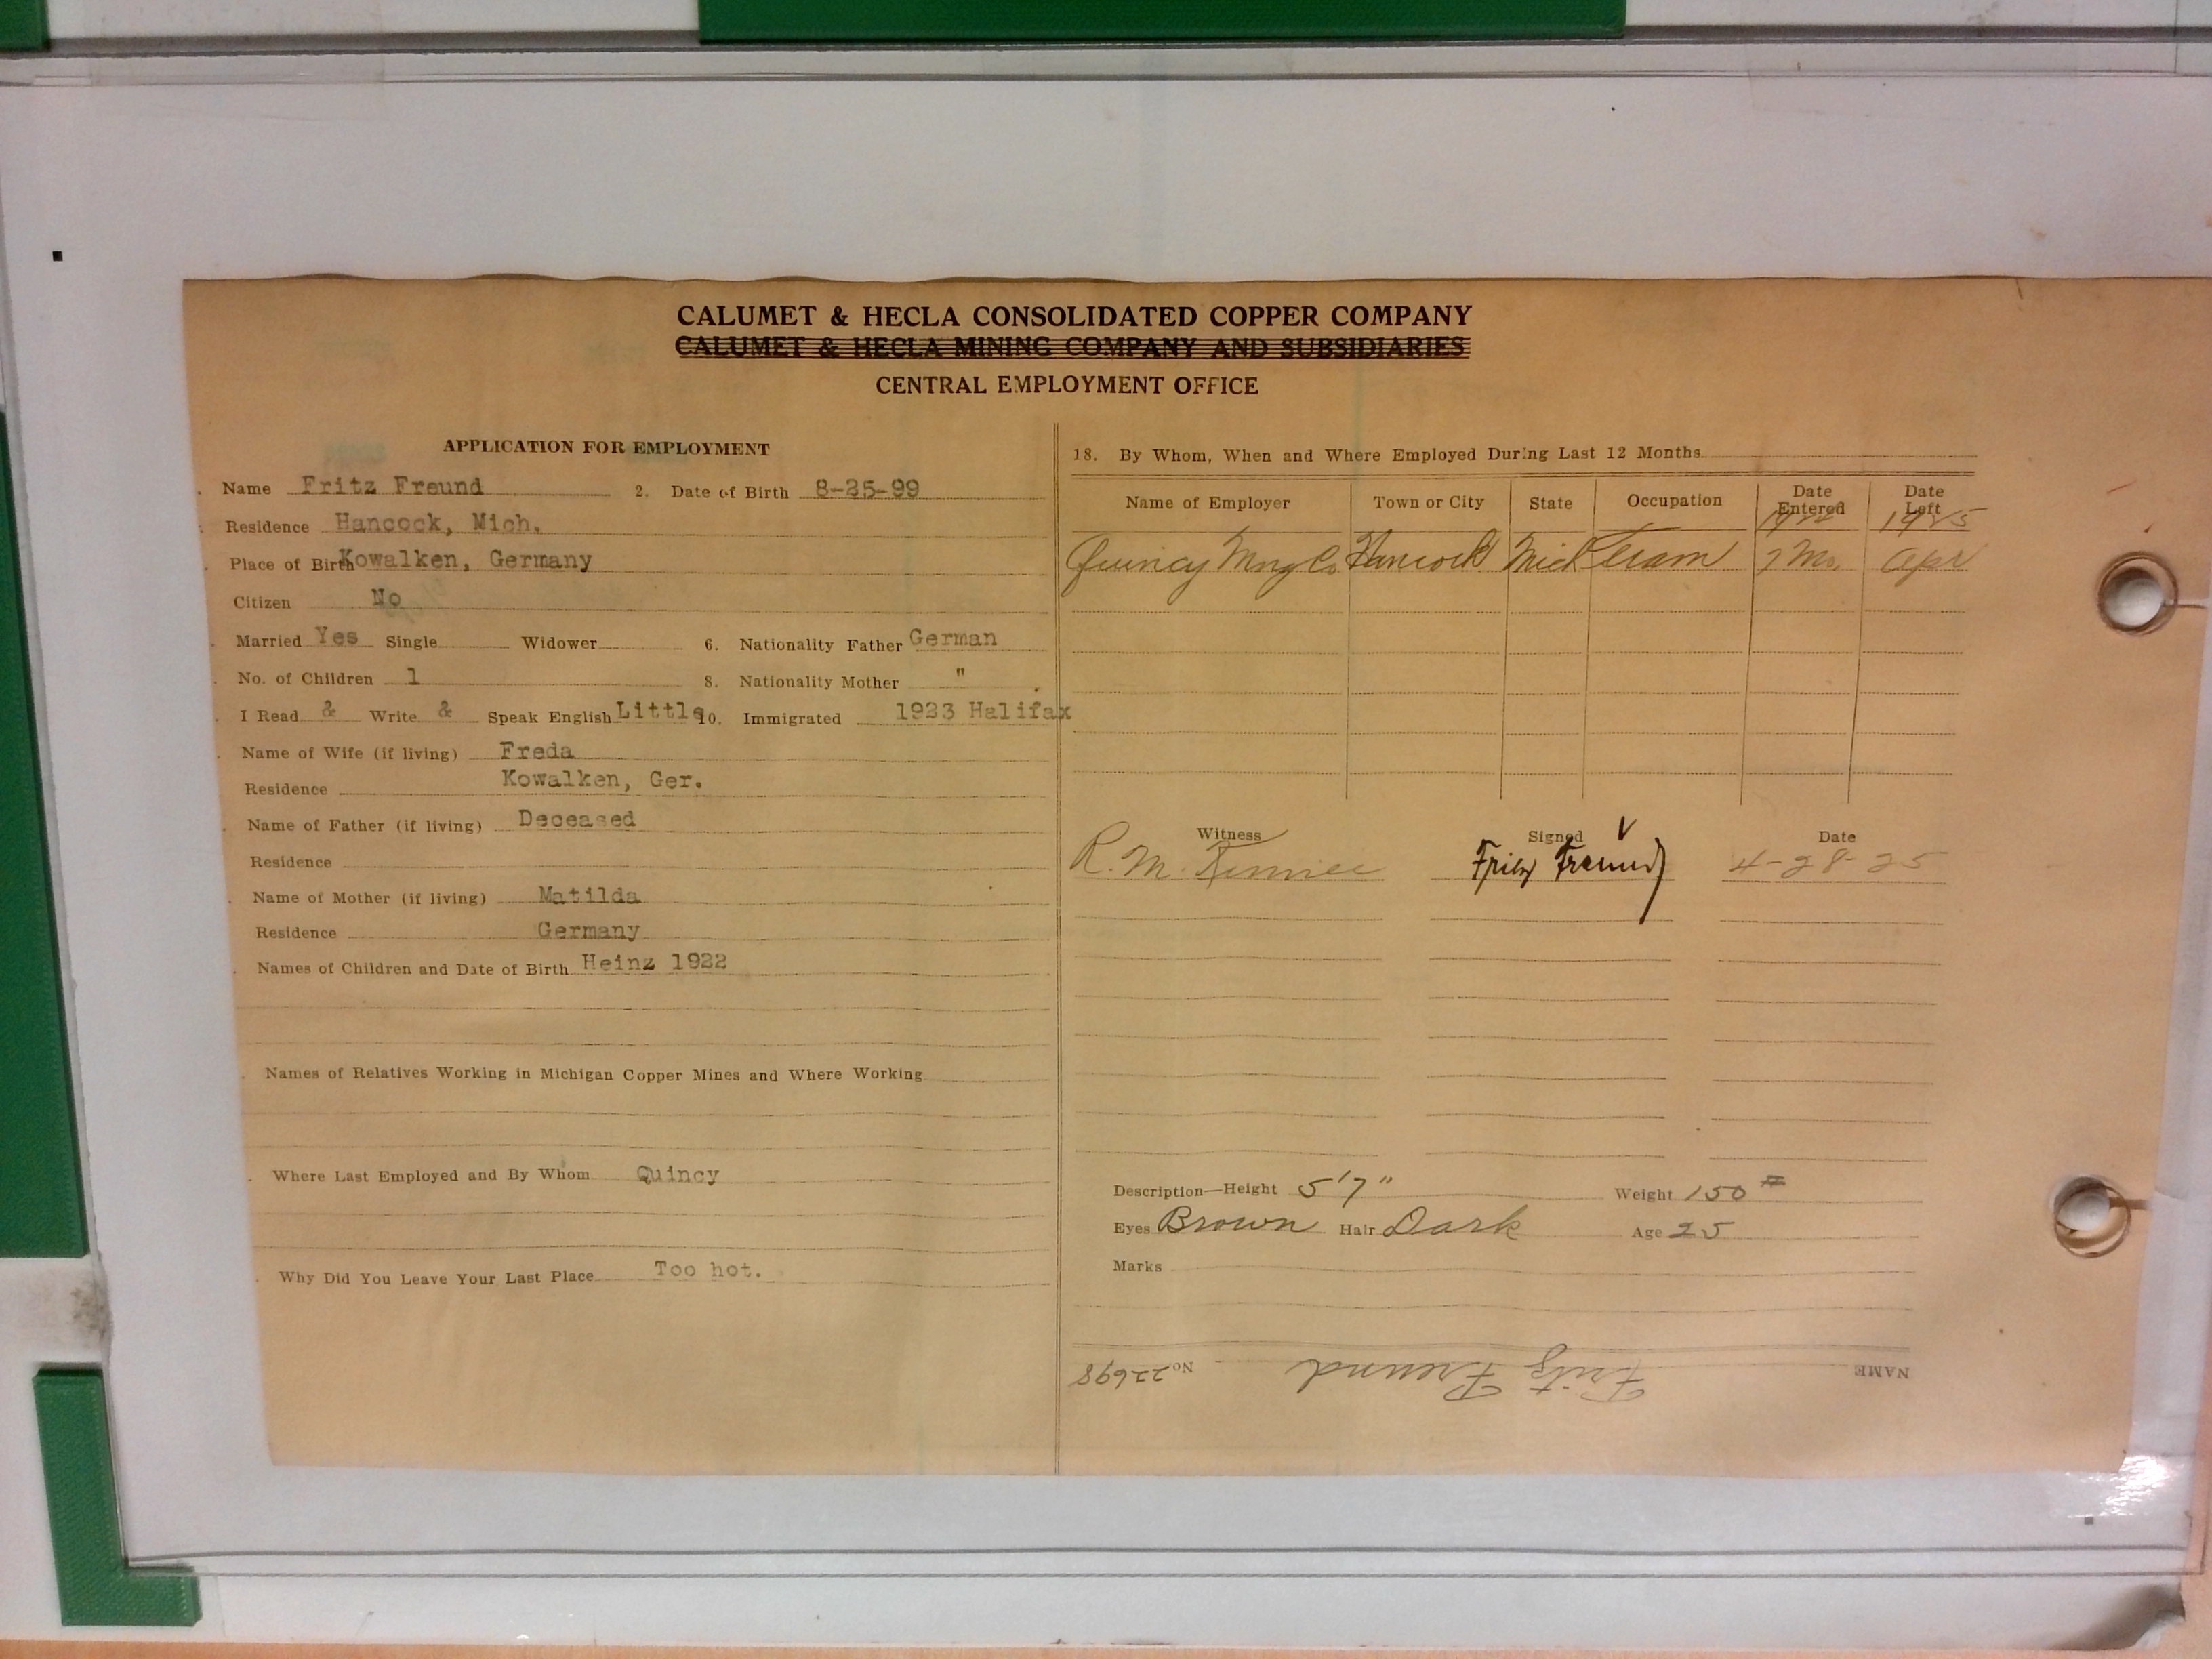 CALUMET & HECLA CONSOLIDATED COPPER COMPANY
CALUMET & HECLA MINING COMPANY AND SUBSIDIARIES
CENTRAL EMPLOYMENT OFFICE
APPLICATION FOR EMPLOYMENT
Name Fritz Freund 2. Date of Birth 8-25-99
Residence Hancock, Mich.
Place of Birth Kowalken, Germany
Citizen No
Married Yes Single Widower 6. Nationality Father German
No. of Children 1 8. Nationality Mother "
I Read & Write & Speak English Little 10. Immigrated 1923 Halifax
Name of Wife (if living) Freda
Residence Kowalken, Ger.
Name of Father (if living) Deceased
Residence
Name of Mother (if living) Matilda
Residence Germany
Names of Children and Date of Birth Heinz 1922
Names of Relatives Working in Michigan Copper Mines and Where Working
Where Last Employed and By Whom Quincy
Why Did You Leave Your Last Place Too hot.
18. By Whom, When and Where Employed During Last 12 Months
Name of Employer Town or City State Occupation Date Entered Date Left
1925
Quincy Mng Co Hancock Mich Tram Mo. Apr
Witness Signed Date
R. M. Fritz Freund 4-28-25
Description—Height 5'7" Weight 150 #
Eyes Brown Hair Dark Age 25
Marks
NAME Fritz Freund No 22698